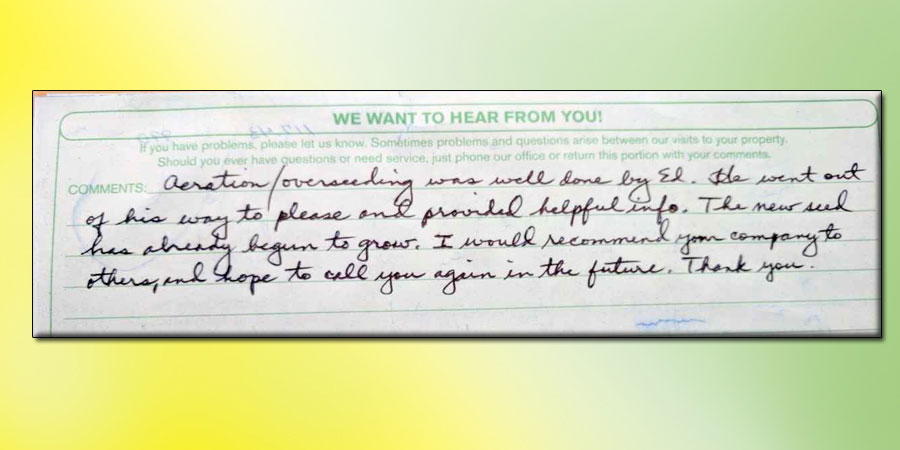 WE WANT TO HEAR FROM YOU!
If you have problems, please let us know. Sometimes problems and questions arise between our visits to your property.
Should you ever have questions or need service, just phone our office or return this portion with your comments.
COMMENTS: Aeration/overseeding was well done by Ed. He went out
of his way to please and provided helpful info. The new seed
has already begun to grow. I would recommend your company to
others, and hope to call you again in the future. Thank you.